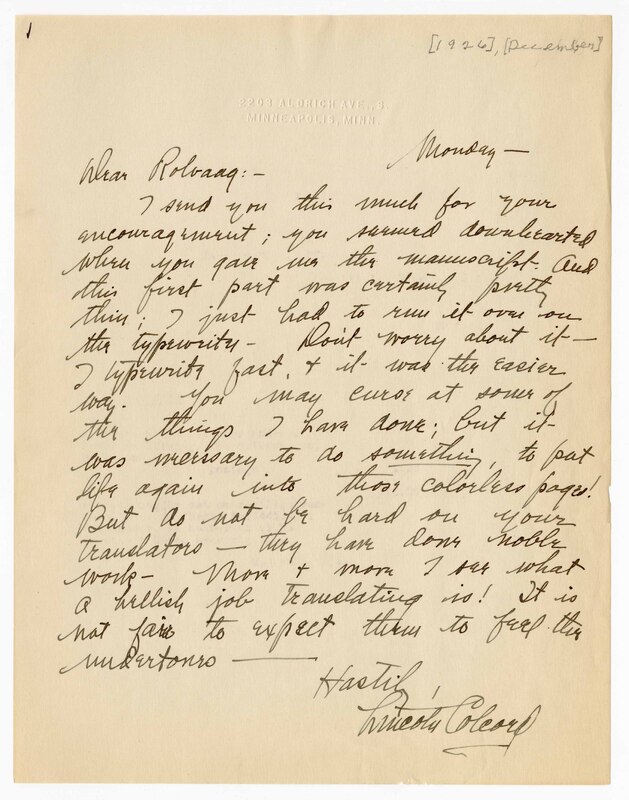 1
[1926], [December]
2203 ALDRICH AVE., S.
MINNEAPOLIS, MINN.
Monday —
Dear Rolvaag: —
I send you this much for your
encouragement; you seemed downhearted
when you gave me the manuscript. And
this first part was certainly pretty
thin; I just had to run it over on
the typewriter — Don't worry about it —
I typewrite fast, + it was the easier
way. You may curse at some of
the things I have done; but it
was necessary to do something, to put
life again into those colorless pages!
But do not be hard on your
translators — they have done noble
work — More + more I see what
a hellish job translating is! It is
not fair to expect them to feel the
undertones —
Hastily,
Lincoln Colcord